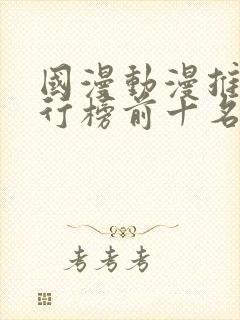 國漫動漫推
行榜前十名
考考考